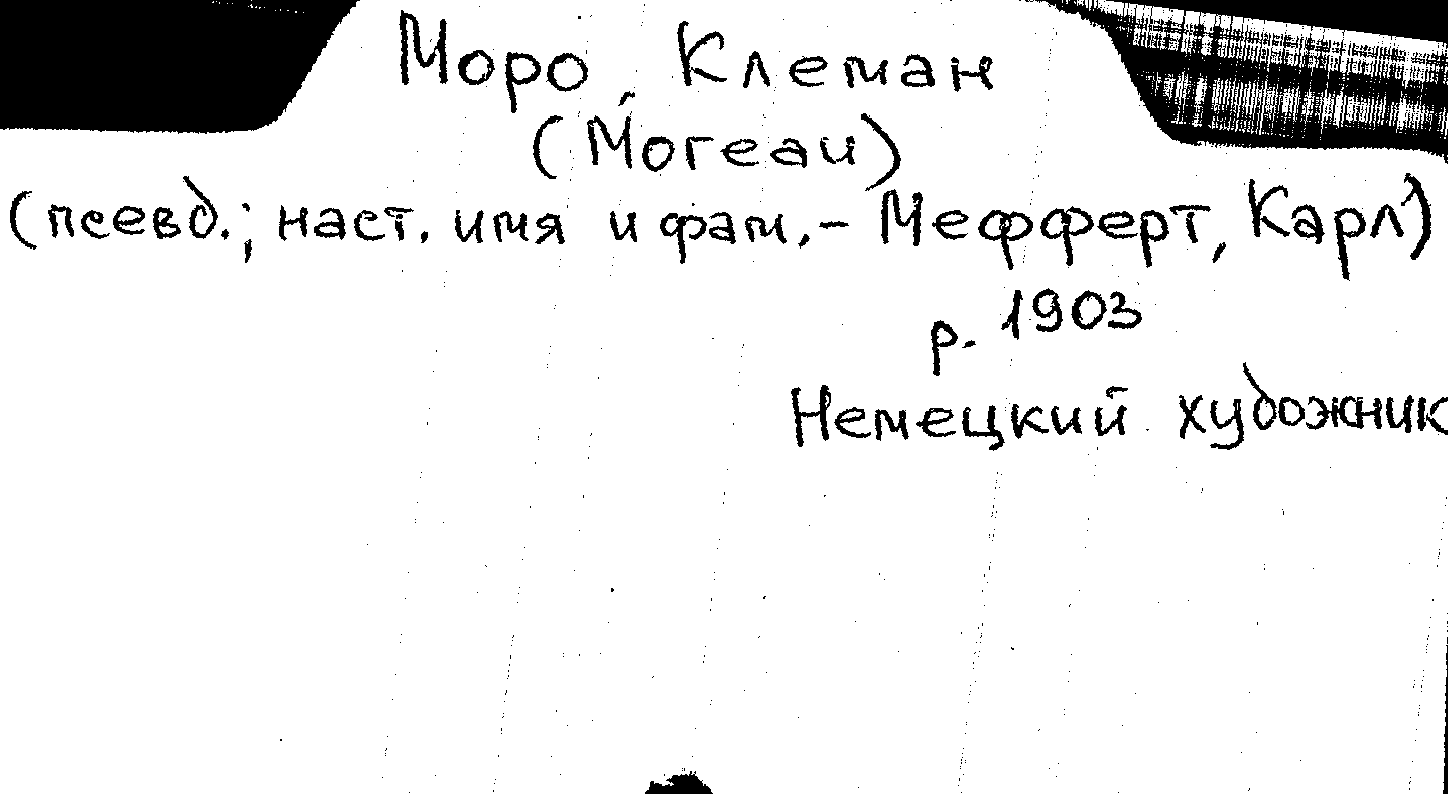 Моро, Клеман
(Moreau)
(псевд.; наст. имя и фам.- Мефферт, Карл)
р. 1903
Немецкий художник